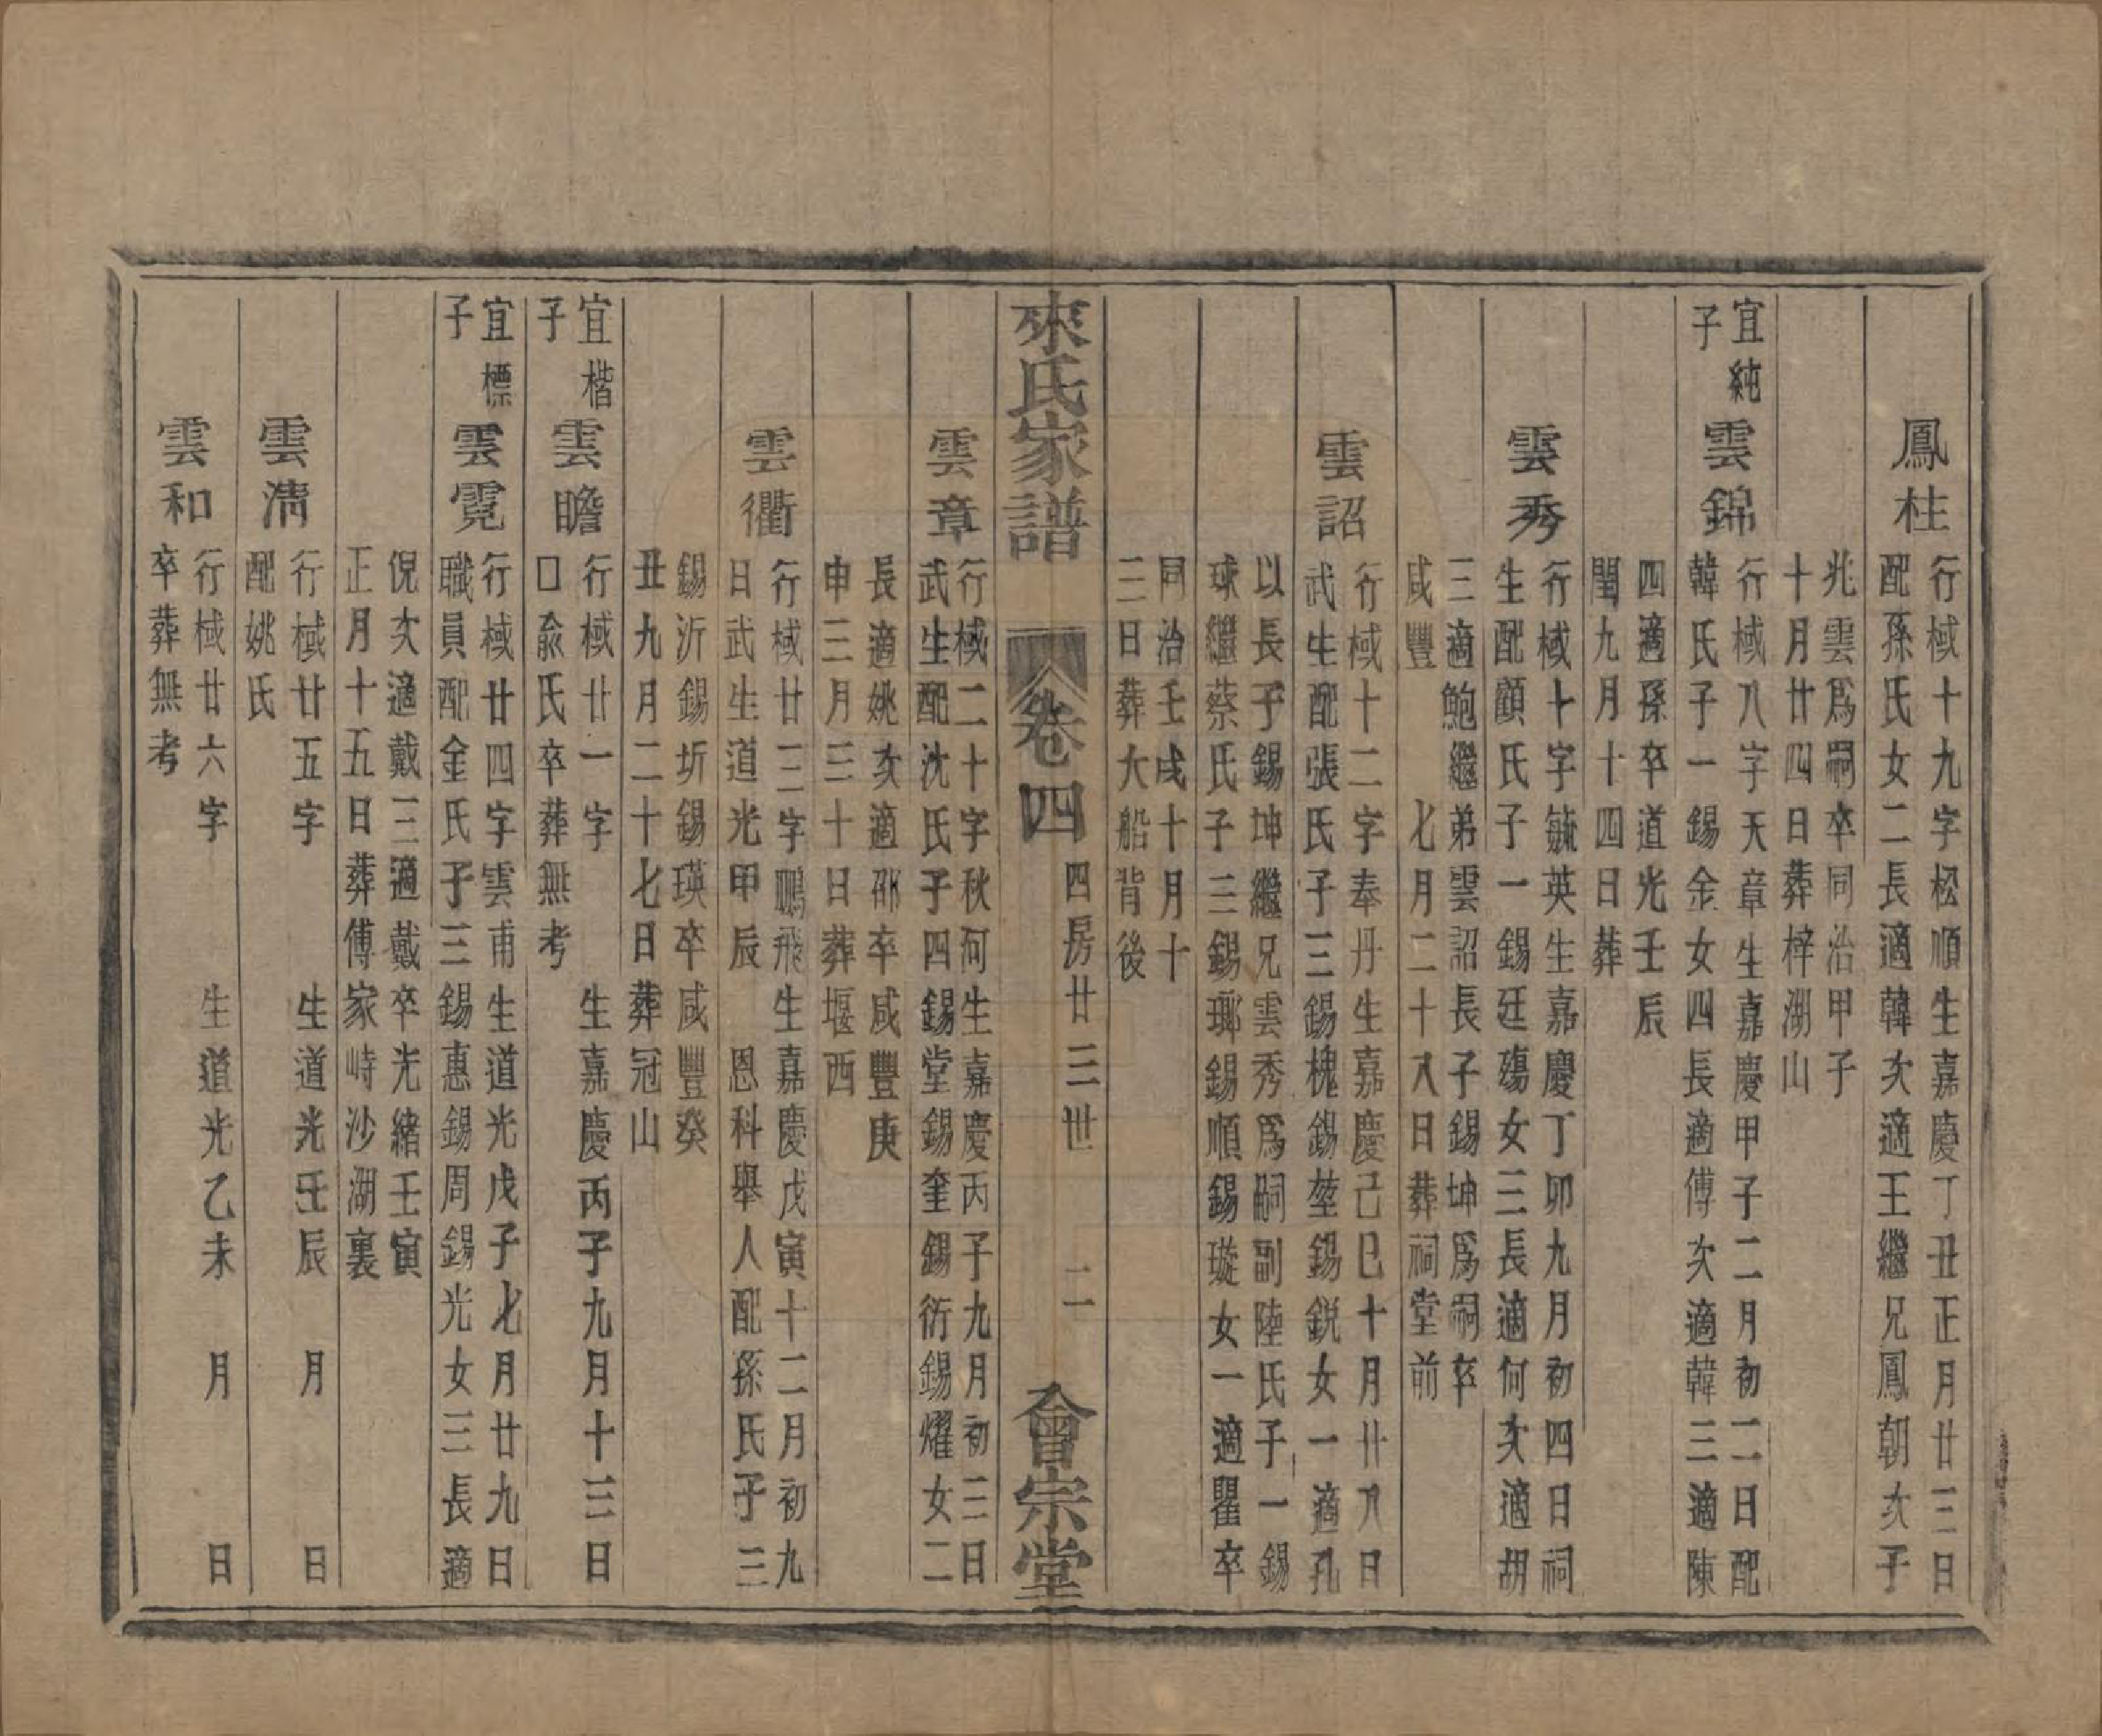 鳳桂
行棫十九字松順生嘉慶丁丑正月廿三日
配孫氏女二長適韓次適王繼兄鳳朝次子
兆雲爲嗣卒同治甲子
十月廿四日葬梓湖山
宜純
子
雲錦
行棫八字天章生嘉慶甲子二月初二日配
韓氏子一錫金女四長適傅次適韓三適陳
四適孫卒道光壬辰
閏九月十四日葬
雲秀
行棫十字毓英生嘉慶丁卯九月初四日祠
生配顧氏子一錫廷殤女三長適何次適胡
三適鮑繼弟雲詔長子錫坤爲嗣卒
咸豐 七月二十八日葬祠堂前
雲詔
行棫十二字奉丹生嘉慶己巳十月廿八日
武生配張氏子三錫槐錫堃錫鋭女一適孔
以長子錫坤繼兄雲秀爲嗣副陸氏子一錫
球繼蔡氏子三錫瑯錫順錫璇女一適瞿卒
同治壬戌十月十
三日葬大船背後
來氏家譜 卷四 四房廿三世 二 會宗堂
雲章
行棫二十字秋河生嘉慶丙子九月初三日
武生配沈氏子四錫堂錫奎錫衍錫燿女二
長適姚次適邵卒咸豐庚
申三月三十日葬堰西
雲衢
行棫廿三字鵬飛生嘉慶戊寅十二月初九
日武生道光甲辰 恩科舉人配孫氏子三
錫沂錫圻錫瑛卒咸豐癸
丑九月二十七日葬冠山
宜楷
子
雲瞻
行棫廿一字 生嘉慶丙子九月十三日
口俞氏卒葬無考
宜標
子
雲霓
行棫廿四字雲甫生道光戊子七月廿九日
職員配金氏子三錫惠錫周錫光女三長適
倪次適戴三適戴卒光緒壬寅
正月十五日葬傅家峙沙湖裏
雲淸
行棫廿五字 生道光壬辰 月 日
配姚氏
雲和
行棫廿六字 生道光乙未 月 日
卒葬無考